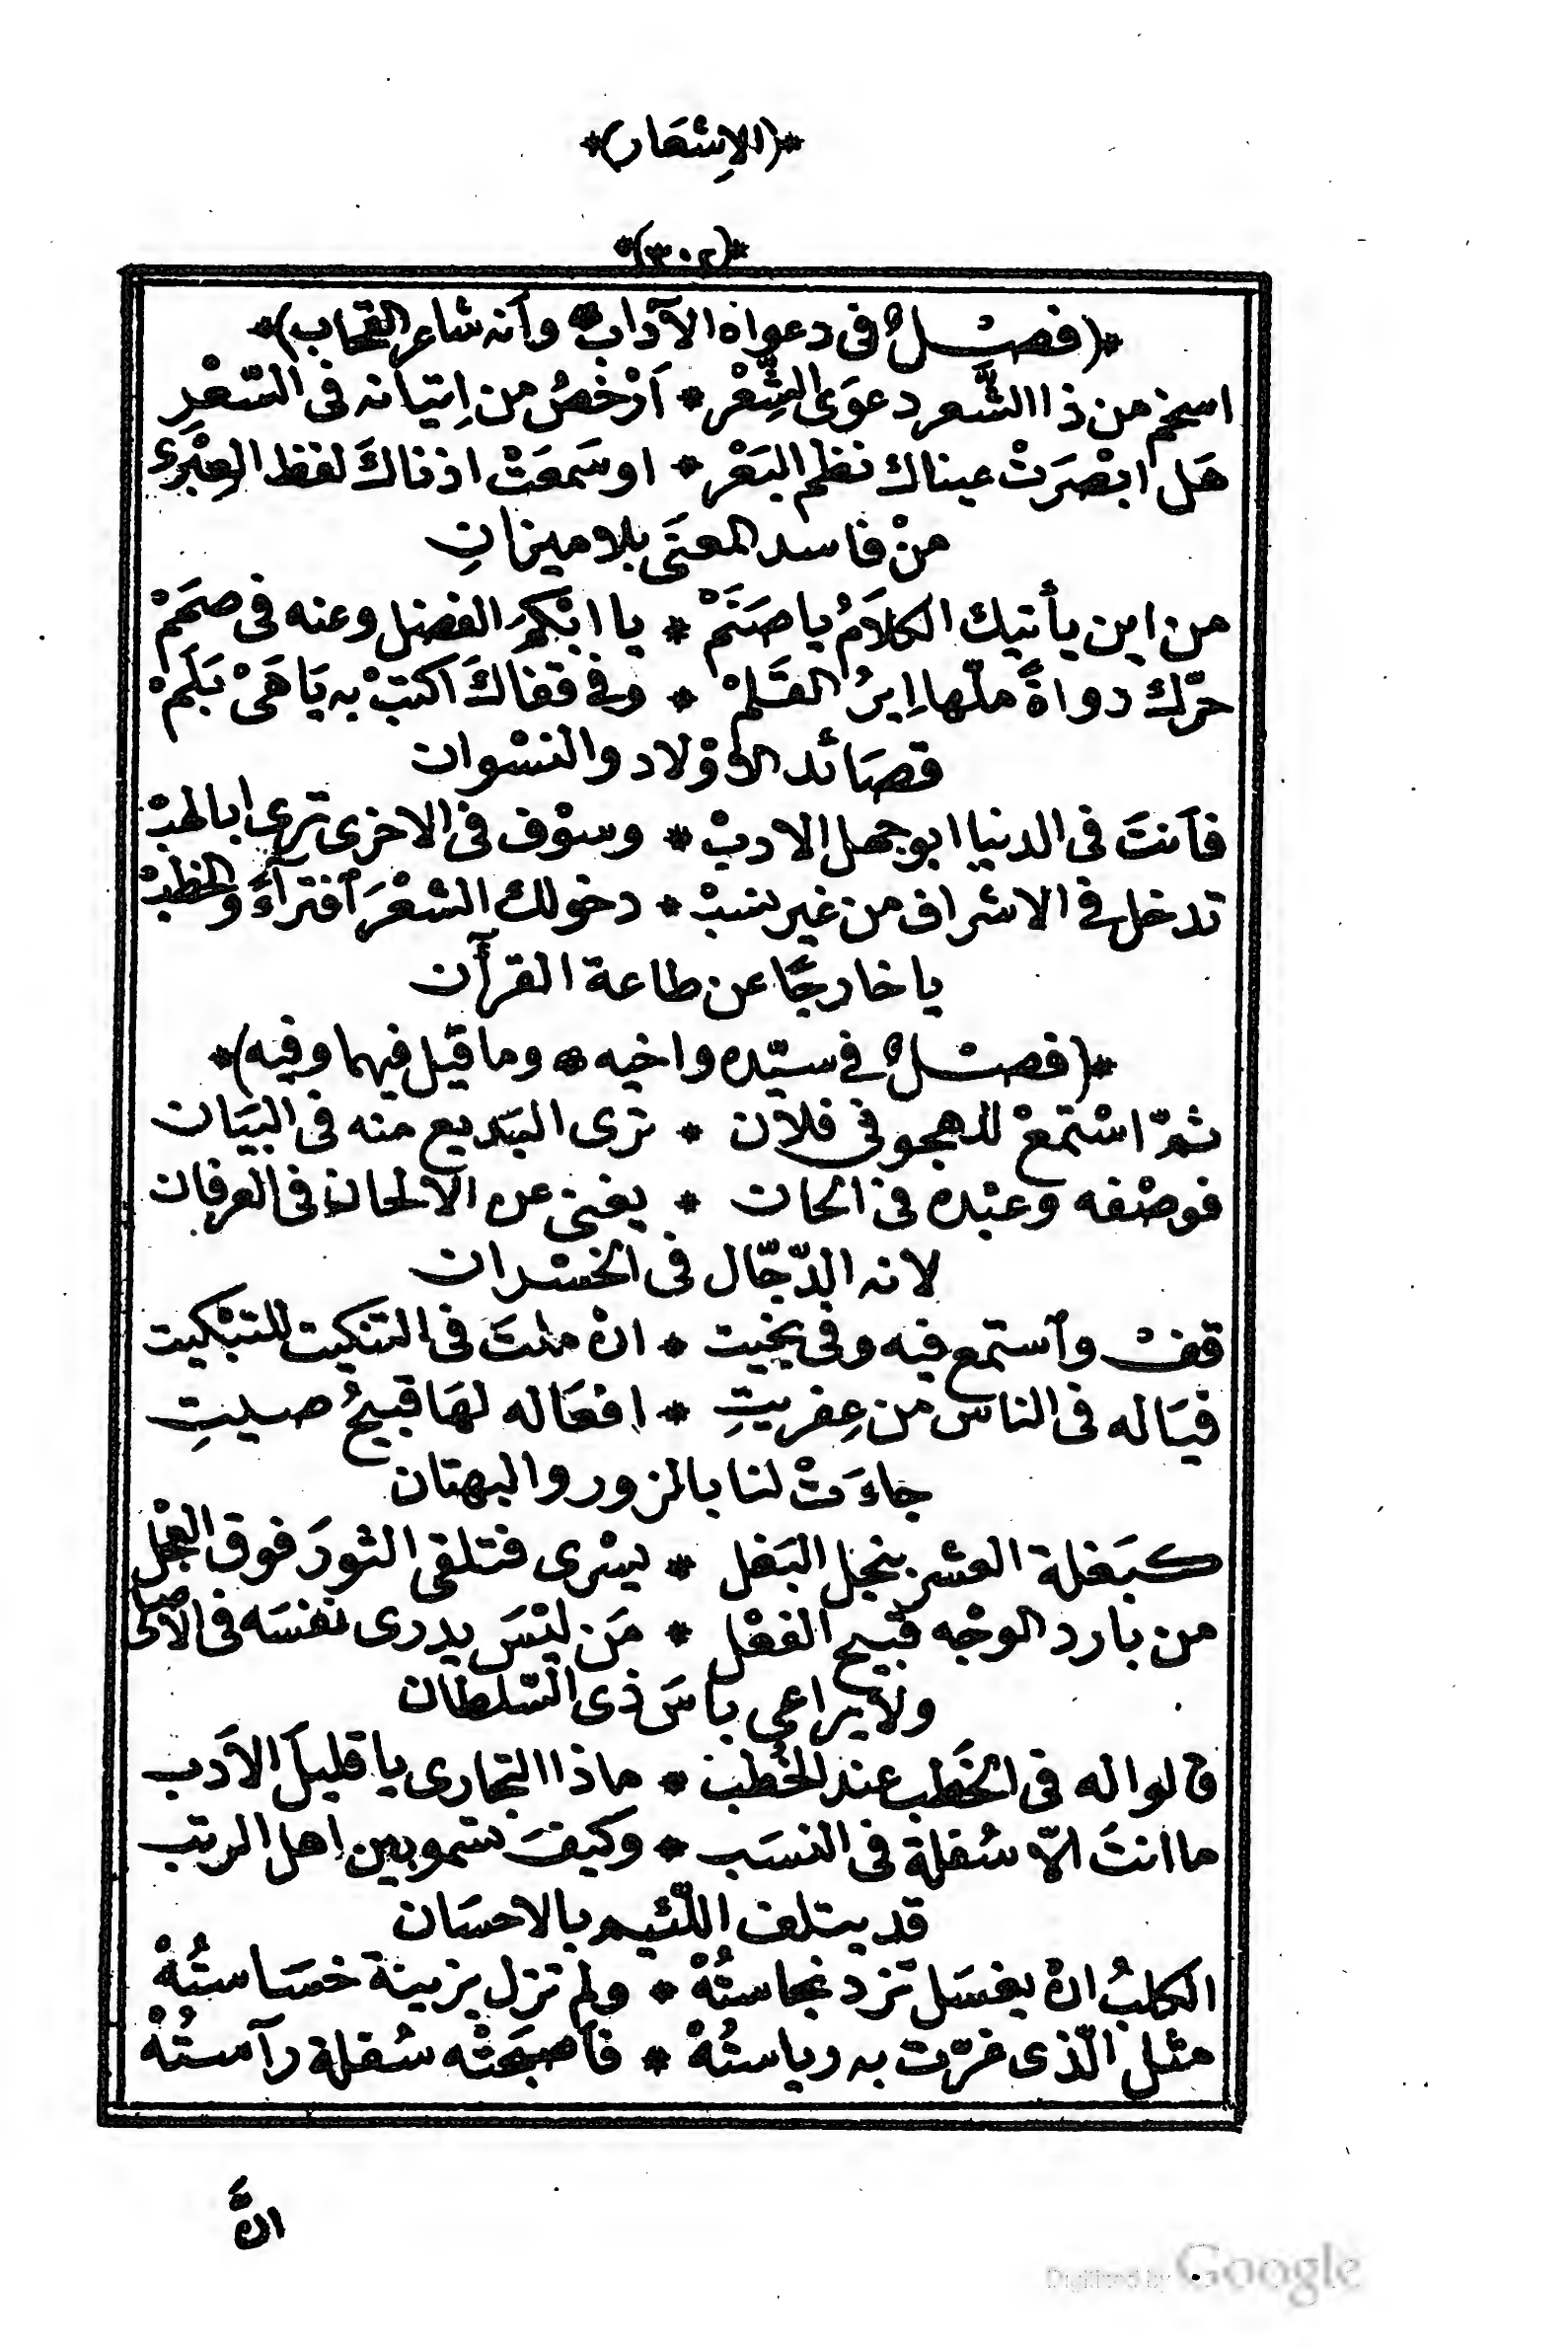 *(الإشعار)*
*(٣٠٢)*
*(فصل في دعواه الآداب * وأنه شاعر القحاب)*
اسخم من ذا الشَّعر دعوَى الشِّعْر * اَرْخَصُ من اِتيانه فى السّعْرِ
هَل ابْصَرَتْ عيناك نظم البَعْر * او سَمعَتْ اذناكَ لفظ العِبْرى
منْ فاسد المعنَى بلا ميزانِ
من اين يأتيك الكلاَمُ يا صَنَمْ * يا ابْكمَ الفضل وعنه فى صمَمْ
حرّك دواةً ملّها اِيرُ القَلمْ * وفى قفاكَ اكتبْ به يَا هَىْ بَلَمْ
قصَائد الاوْلاد والنسْوان
فاَنتَ فى الدنيا ابوجهل الادبْ * وسوْف فى الاخرى ترى ابا لهبْ
تدخل فى الاشراف من غير نسبْ * دخولك الشعْرَ اَفترآءَ والخطبْ
يا خارجًا عن طاعة القرأن
*(فصل فى سيّده واخيه * وما قيل فيهما وفيه)*
ثمّ اسْتمعْ للهجو فى فلان * ترى البَديع منه فى البيَان
فوصْفه وعبْده فى الحان * يغنى عن الالحان فى العرفان
لانه الدّجّال فى الخسْران
قفْ وآستمع فيه وفى بخيت * انْ ملتَ فى التنكيت للتبْكيت
فيَاله فى الناس من عِفريتِ * افعَاله لهَا قبيحُ صيتِ
جاءَتْ لنا بالزور والبهتان
كبَغلة العشر بنجل البَغل * يسْرى فتلقى الثورَ فوق العجْل
من بارد الوجْه قبيح الفعْل * مَن ليْسَ يدرى نفسَه فى الاصل
ولا يراعى باسَ ذى السّلطان
قالوا له فى الخَطب عند الخُطب * ماذا التجارى يا قليلَ الاَدب
ما انتَ الاّ سُفلة فى النسَب * وكيْفَ تسمو بين اهل الرتب
قد يتلف اللّئيم بالاحسَان
الكلبُ انْ يغسَل تزد نجاستُهْ * ولم تزل بزينة خسَاستُهْ
مثل الّذى غرّت به رياستُهْ * فاَصبحَتْه سُفلة رآستُهْ
انَّ
Digitized by Google